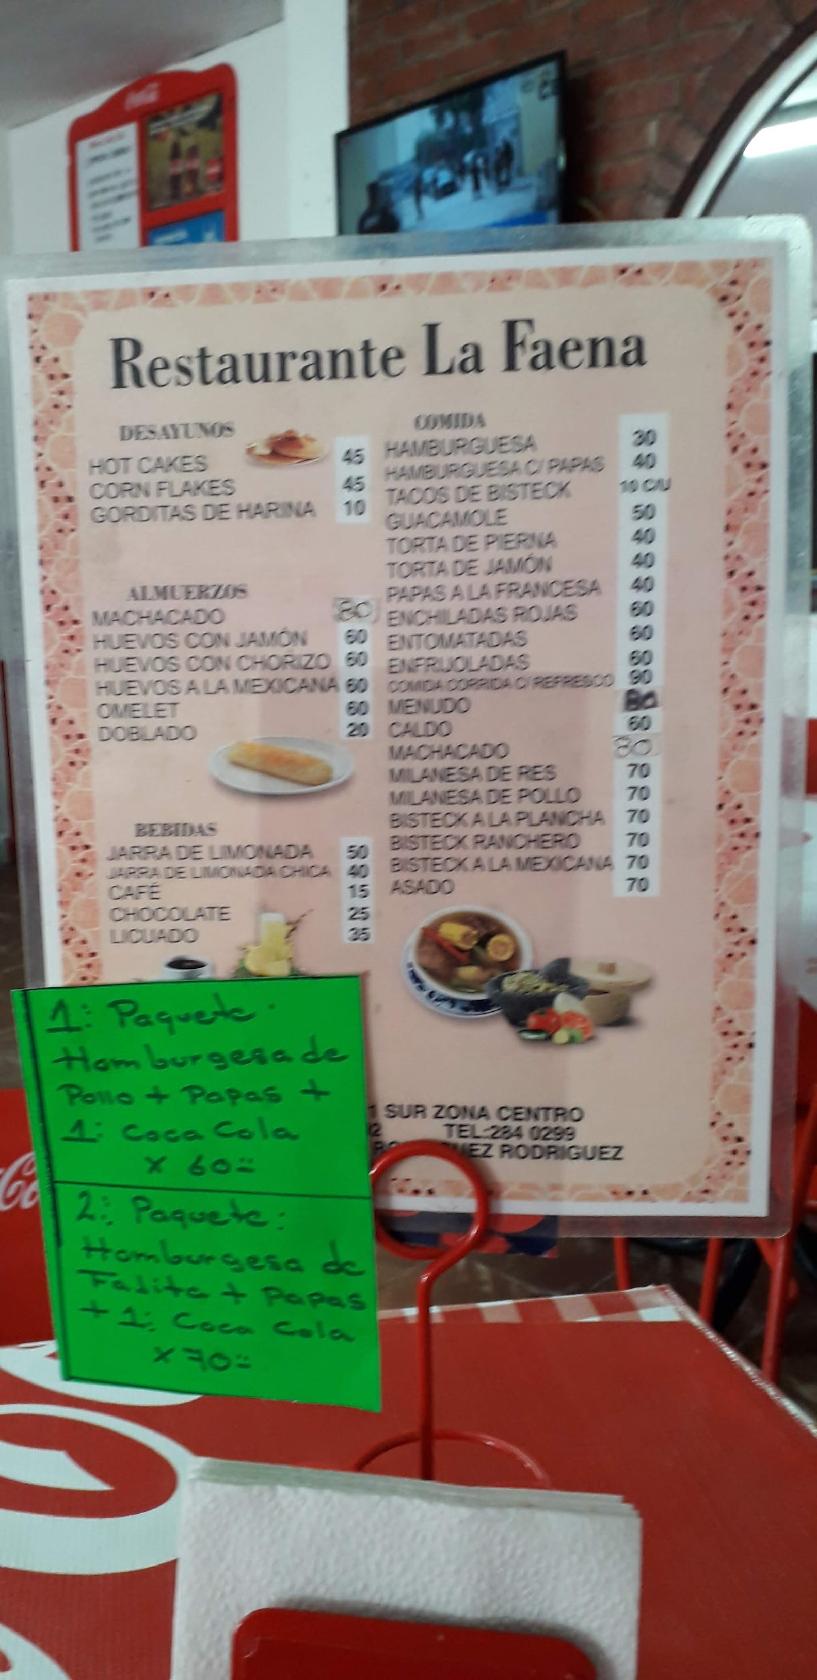 Restaurante La Faena
DESAYUNOS
HOT CAKES 45
CORN FLAKES 45
GORDITAS DE HARINA 10
ALMUERZOS
MACHACADO 80
HUEVOS CON JAMÓN 60
HUEVOS CON CHORIZO 60
HUEVOS A LA MEXICANA 60
OMELET 60
DOBLADO 20
BEBIDAS
JARRA DE LIMONADA 50
JARRA DE LIMONADA CHICA 40
CAFÉ 15
CHOCOLATE 25
LICUADO 35
COMIDA
HAMBURGUESA 30
HAMBURGUESA C/ PAPAS 40
TACOS DE BISTECK 10 C/U
GUACAMOLE 50
TORTA DE PIERNA 40
TORTA DE JAMÓN 40
PAPAS A LA FRANCESA 40
ENCHILADAS ROJAS 60
ENTOMATADAS 60
ENFRIJOLADAS 60
COMIDA CORRIDA C/ REFRESCO 90
MENUDO 80
CALDO 60
MACHACADO 80
MILANESA DE RES 70
MILANESA DE POLLO 70
BISTECK A LA PLANCHA 70
BISTECK RANCHERO 70
BISTECK A LA MEXICANA 70
ASADO 70
1 SUR ZONA CENTRO
TEL:284 0299
RODRIGUEZ
1: Paquete.
Hamburgesa de
Pollo + Papas +
1: Coca Cola
x 60=
2: Paquete:
Hamburgesa de
Fajita + Papas
+ 1: Coca Cola
x 70=